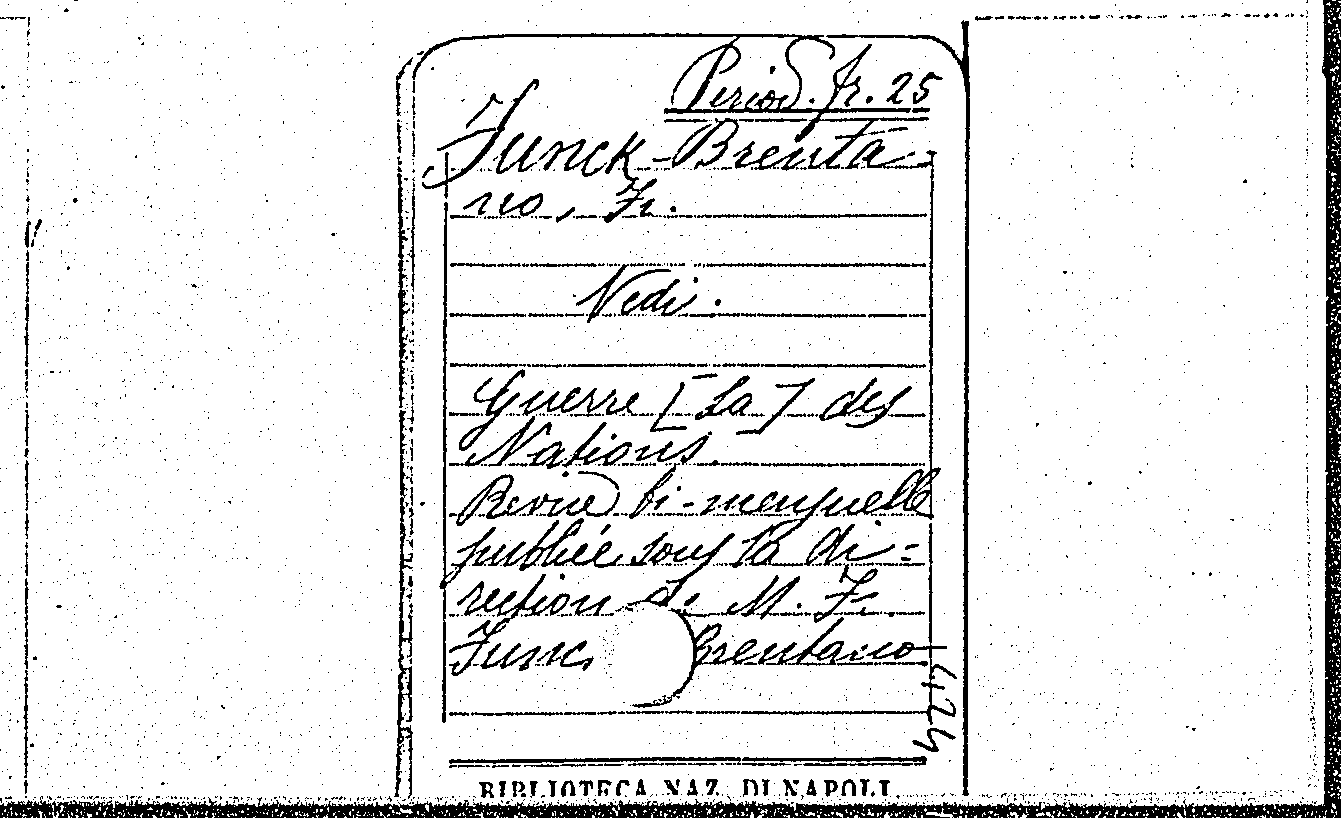 Period. fr. 25
Funck-Brenta-
no, Fr.
Vedi.
Guerre [La] des
Nations.
Revue bi-mensuelle
publiée sous la di=
rection de M. Fr.
Func Brentano
424
BIBLIOTECA NAZ. DI NAPOLI.